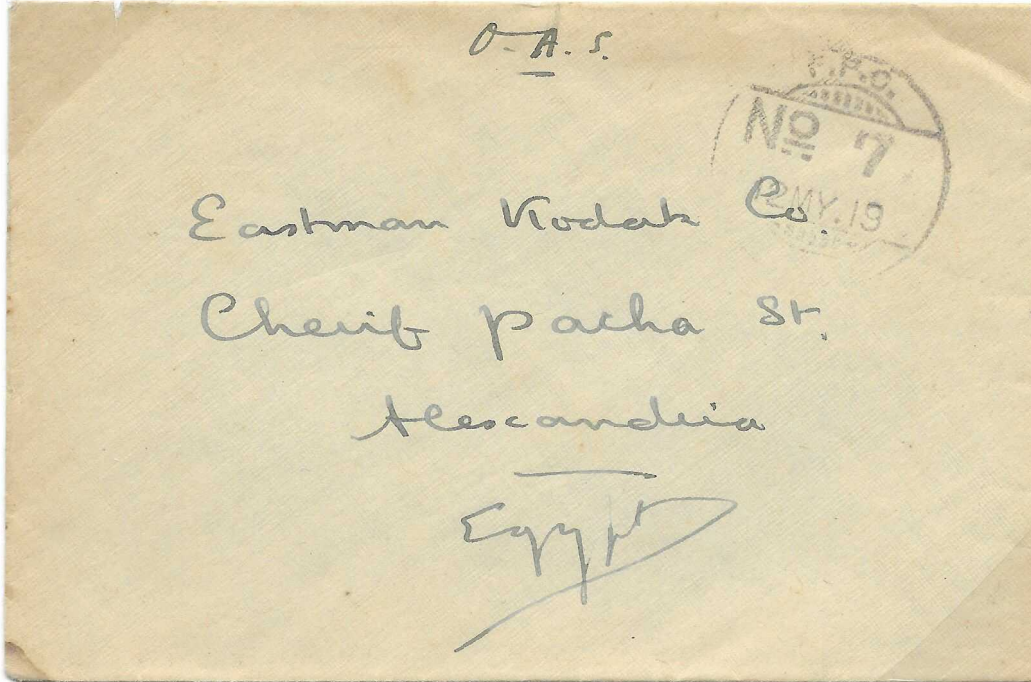 O.A.S.
F.P.O.
No 7
12MY.19
Eastman Kodak Co.
Cherif Pacha St.
Alexandria
Egypt